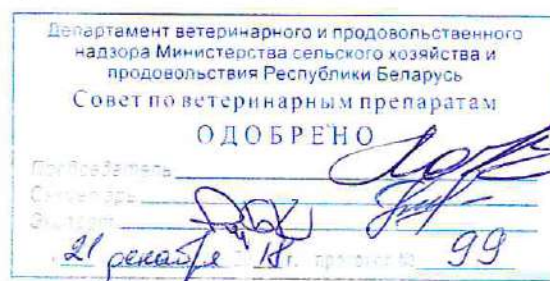 Департамент ветеринарного и продовольственного
надзора Министерства сельского хозяйства и
продовольствия Республики Беларусь
Совет по ветеринарным препаратам
ОДОБРЕНО
Председатель
Секретарь
Эксперт
21 декабря 2018 г. протокол № 99